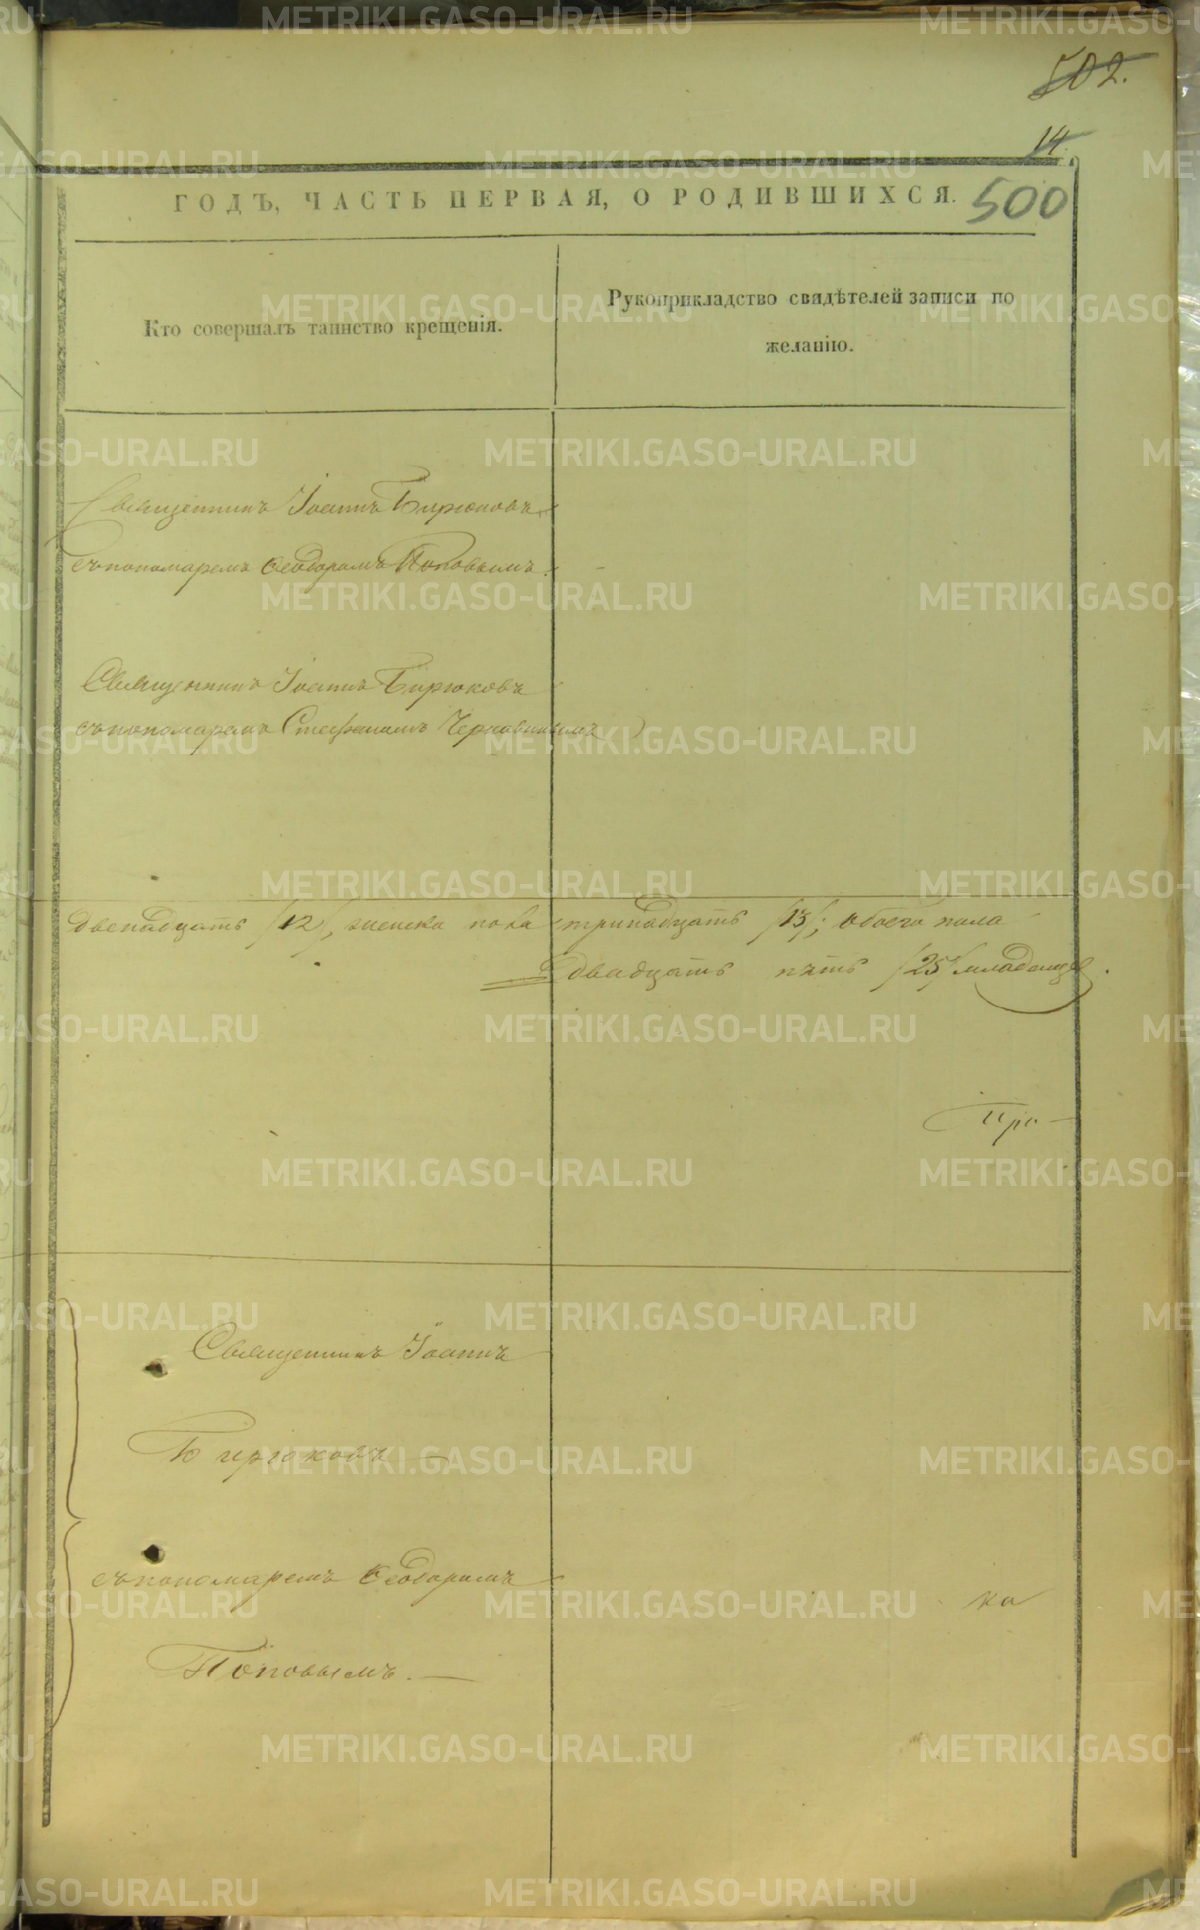 502.
14.
ГОДЪ, ЧАСТЬ ПЕРВАЯ, О РОДИВШИХСЯ.
500
Кто совершалъ таинство крещенія.
Рукоприкладство свидѣтелей записи по
желанію.
Священникъ Іоаннъ Бирюковъ
съ пономаремъ Ѳеодоромъ Поповымъ.
Священникъ Іоаннъ Бирюковъ
съ пономаремъ Стефаномъ Чернавинымъ
двенадцать /12/, женска пола тринадцать /13/; обоего пола
двадцать пять /25/ младенцев.
При-
Священникъ Іоаннъ
Бирюковъ
съ пономаремъ Ѳеодоромъ
ка
Поповымъ.
METRIKI.GASO-URAL.RU